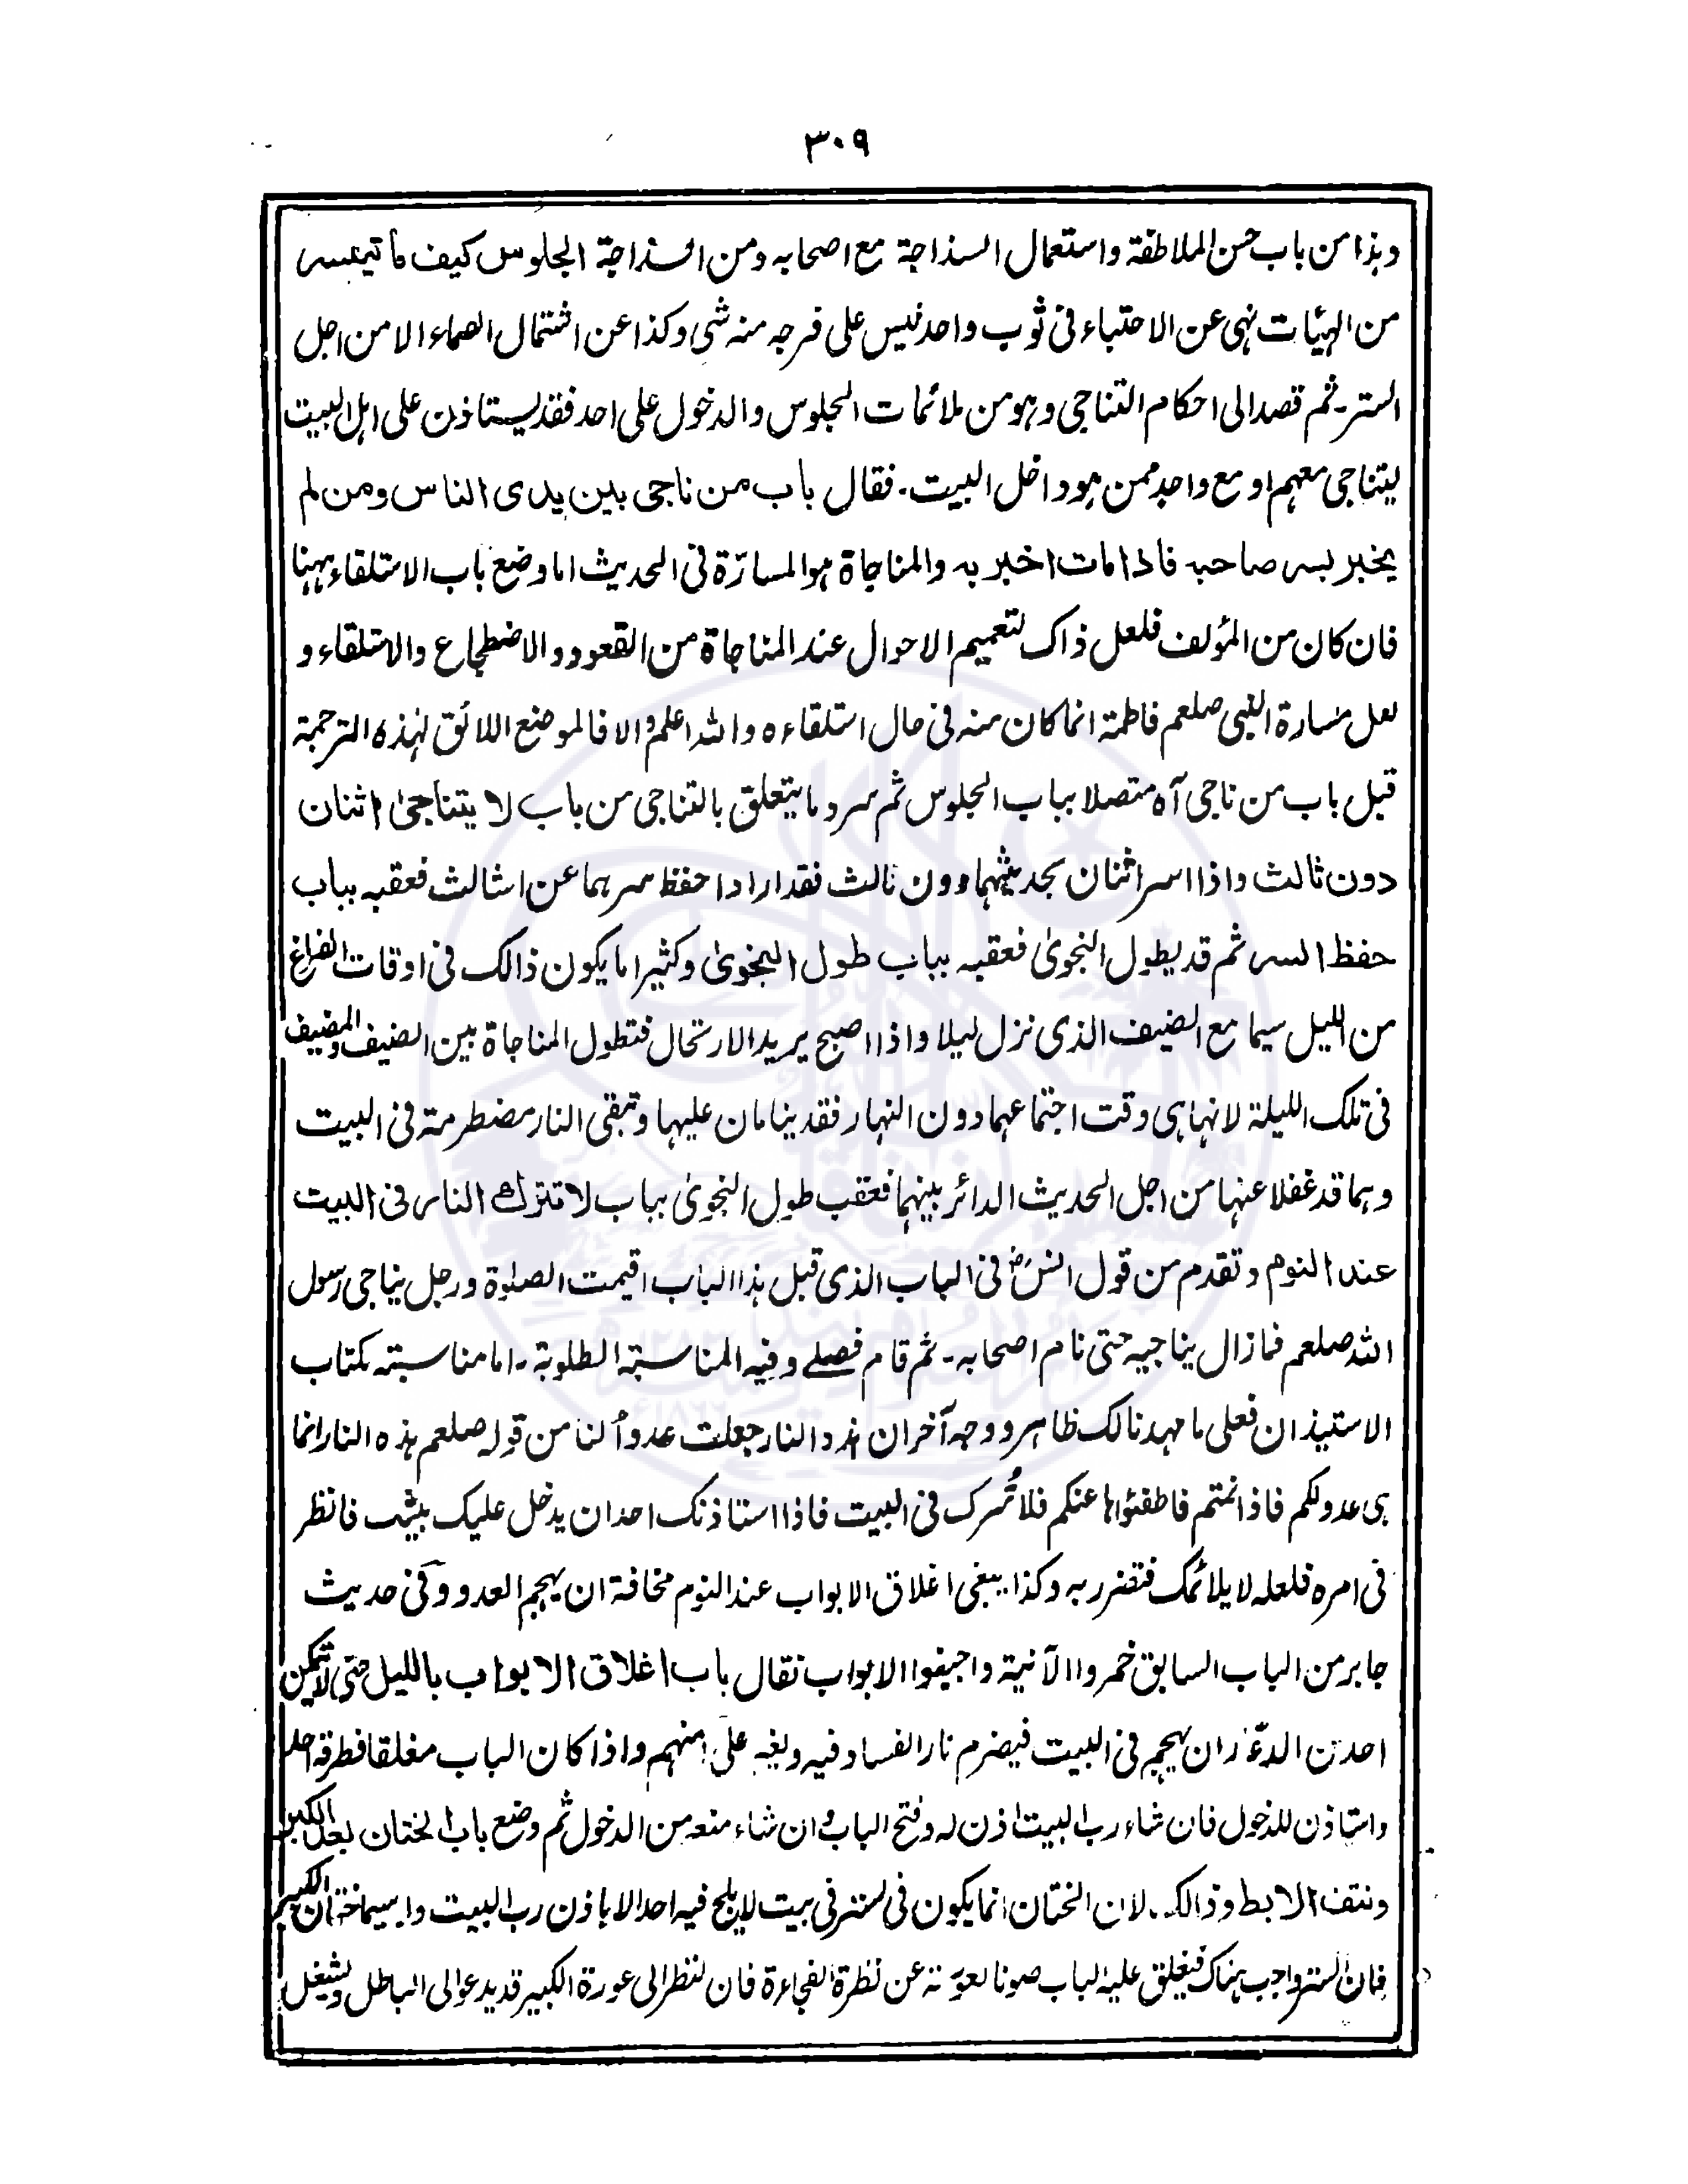 ٣٠٩
وہذا من باب حسن الملاطفة واستعمال السذاجة مع اصحابه ومن السذاجة الجلوس كيف ما تيسر
من الہيئات نہى عن الاحتباء فى ثوب واحد ليس على فرجه منه شئ وكذا عن اشتمال الصماء الا من اجل
الستر۔ ثم قصد الى احكام التناجى وہو من ملائمات الجلوس والدخول على احد فقد يستاذن على اہل البيت
ليتناجى معہم او مع واحد ممن ہو داخل البيت۔ فقال باب من ناجى بين يدى الناس ومن لم
يخبر بسر صاحبه فاذا مات اخبر به والمناجاة ہو المسارّة فى الحديث اما وضع باب الاستلقاء ہہنا
فان كان من المؤلف فلعل ذاك لتعميم الاحوال عند المناجاة من القعود والاضطجاع والاستلقاء و
لعل مسارة النبى صلعم فاطمة انما كان منه فى حال استلقاءه والله اعلم والا فالموضع اللائق لہذه الترجمة
قبل باب من ناجى آه متصلا بباب الجلوس ثم سرد ما يتعلق بالتناجى من باب لا يتناجىٰ اثنان
دون ثالث واذا اسر اثنان بحديثہما دون ثالث فقد ارادا حفظ سرہما عن الثالث فعقبه بباب
حفظ السر ثم قد يطول النجوىٰ فعقبه بباب طول النجوىٰ وكثيرا ما يكون ذالك فى اوقات الفراغ
من الليل سيما مع الضيف الذى نزل ليلا واذا اصبح يريد الارتحال فتطول المناجاة بين الضيف والمضيف
فى تلك الليلة لانہا ہى وقت اجتماعہما دون النہار فقد ينامان عليہا وتبقى النار مضطرمة فى البيت
وہما قد غفلا عنہا من اجل الحديث الدائر بينہما فعقب طول النجوىٰ بباب لا تترك النار فى البيت
عند النوم وتقدم من قول انسؓ فى الباب الذى قبل ہذا الباب اقيمت الصلوة ورجل يناجى رسول
الله صلعم فمازال يناجيه حتى نام اصحابه۔ ثم قام فصلے وفيه المناسبة المطلوبة۔ اما مناسبته بكتاب
الاستيذان فعلى ما مہدنا لك ظاہر ووجه آخر ان ہذه النار جعلت عدواً لنا من قوله صلعم ہذه النار انما
ہى عدو لكم فاذا نمتم فاطفئواہا عنكم فلا تُترك فى البيت فاذا استاذنك احد ان يدخل عليك بيتك فانظر
فى امره فلعله لا يلائمك فتضرر به وكذا ينبغى اغلاق الابواب عند النوم مخافة ان يہجم العدو وفى حديث
جابر من الباب السابق خمروا الآنية واجيفوا الابواب فقال باب اغلاق الابواب بالليل حتى لا يتمكن
احد من الدعّار ان يہجم فى البيت فيضرم نار الفساد فيه واذا كان الباب مغلقا فطرقه احد
واستاذن للدخول فان شاء رب البيت اذن له وفتح الباب وان شاء منعه من الدخول ثم وضع باب الختان بعد الكبر
ونتف الابط وذالك۔ لان الختان انما يكون فى ستر فى بيت لا يلج فيه احد الا باذن رب البيت ولا سيما ختان الكبير
فان الستر واجب ہناك فيغلق عليه الباب صونا لعورته عن نظرة الفجاءة فان النظر الى عورة الكبير قد يدعو الى الباطل ويشغل